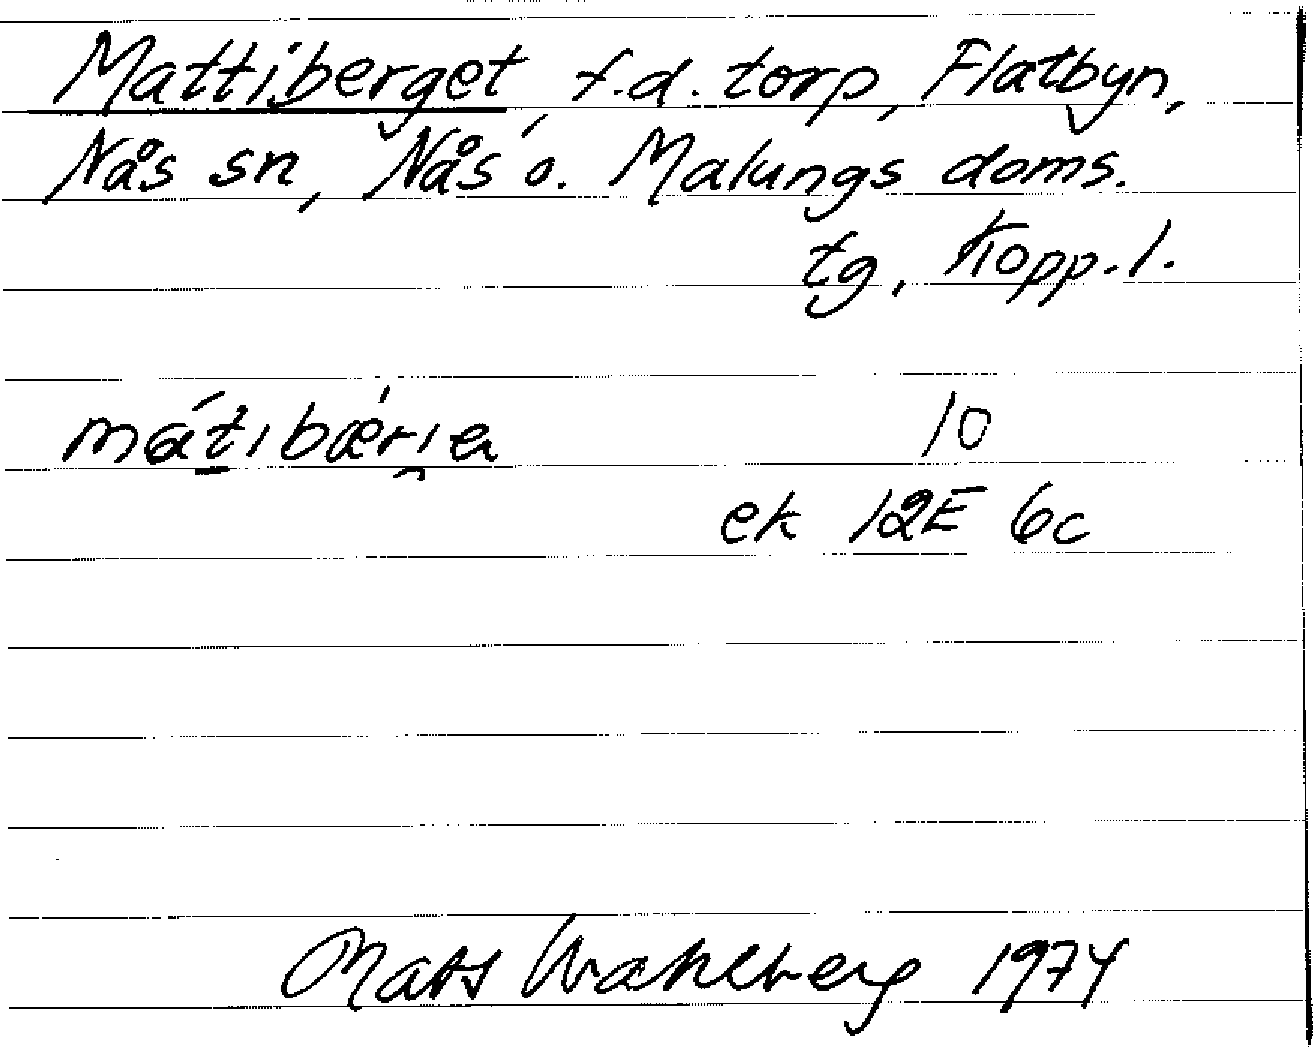 Mattiberget, f.d. torp, Flatbyn,
Nås sn, Nås o. Malungs doms.
tg, Kopp. l.
mátibæ̀rịa 10
ek 12E 6c
Mats Wahlberg 1974